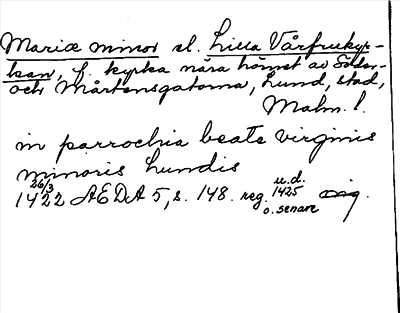 Mariæ minor el. Lilla Vårfrukyr-
kan, f. kyrka nära hörnet av Söder-
och Mårtensgatorna, Lund, stad,
Malm. l.
in parrochia beate virginis
minoris Lundis
26/3 u.d.
1422 AEDA 5, s. 148. reg. 1425 orig.
o. senare